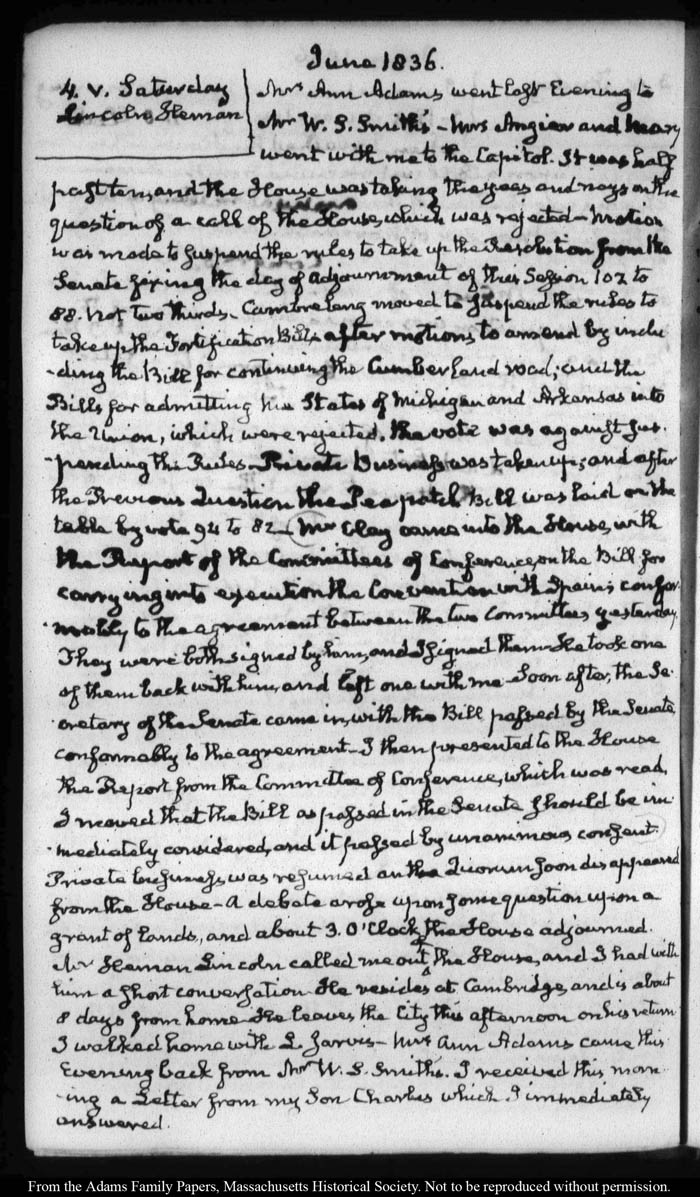 June 1836.
4. V. Saturday
Lincoln Heman
Mrs Ann Adams went last Evening to
Mr W. S. Smith's - Mrs Angier and Mary
went with me to the Capitol. It was half
past ten, and the House was taking the yeas and nays on the
question of a call of the House, which was rejected - Motion
was made to suspend the rules to take up the Resolution from the
Senate fixing the day of adjournment of this Session 102 to
88. not two thirds. Cambreleng moved to suspend the rules to
take up the Fortification Bill, after motions to amend by inclu
-ding the Bill for continuing the Cumberland road; and the
Bills for admitting the States of Michigan and Arkansas into
the Union, which were rejected. the vote was against sus-
-pending the Rules - Private Business was taken up; and after
the Previous Question the Pea patch Bill was laid on the
table by vote 94 to 82 - Mr Clay came into the House, with
the Report of the Committees of Conference, on the Bill for
carrying into execution the Convention with Spain; confor-
-mably to the agreement between the two Committees yesterday.
They were both signed by him, and I signed them - He took one
of them back with him, and left one with me - Soon after, the Se-
-cretary of the Senate came in, with the Bill passed by the Senate,
conformably to the agreement - I then presented to the House
the Report from the Committee of Conference, which was read.
I moved that the Bill as passed in the Senate should be im
-mediately considered, and it passed by unanimous consent.
Private business was resumed and the Quorum soon disappeared
from the House - A debate arose upon some question upon a
grant of lands, and about 3. O'Clock, the House adjourned.
Mr Heman Lincoln called me out of the House, and I had with
him a short conversation - He resides at Cambridge, and is about
8 days from home - He leaves the City this afternoon on his return.
I walked home with L. Jarvis - Mrs Ann Adams came this
Evening back from Mr W. S. Smith's. I received this morn
-ing a Letter from my Son Charles which I immediately
answered.
From the Adams Family Papers, Massachusetts Historical Society. Not to be reproduced without permission.